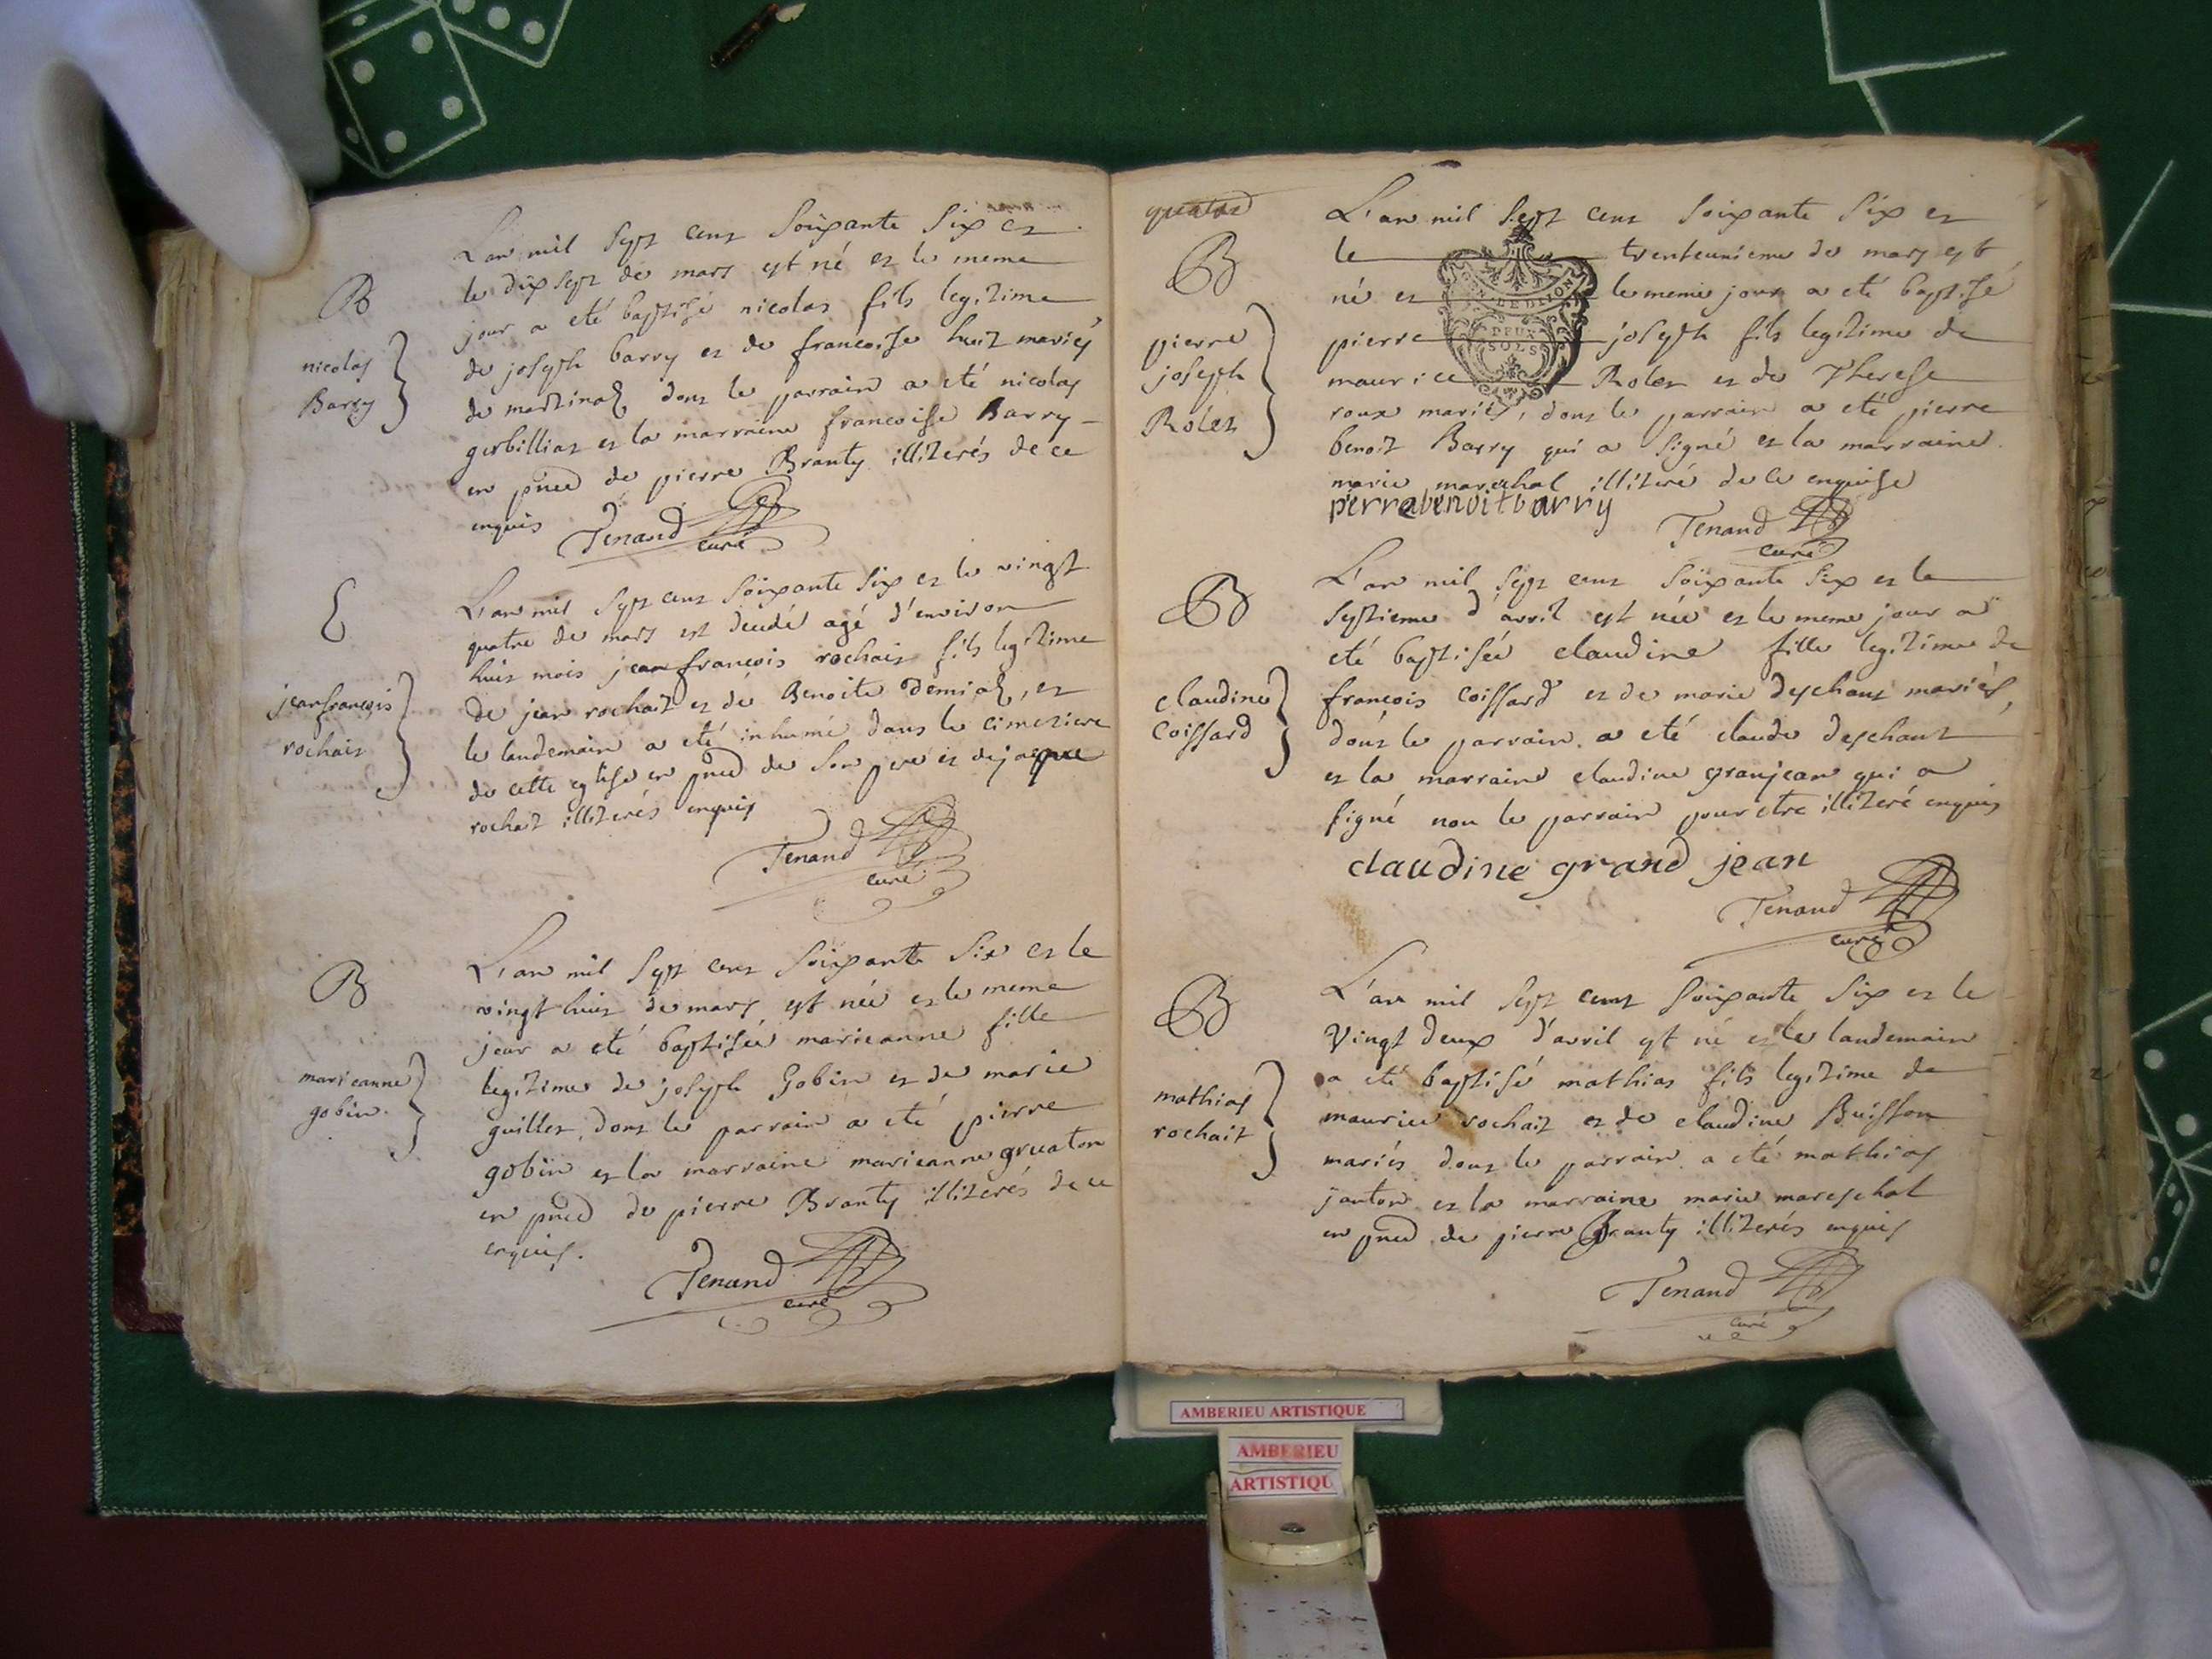 B
nicolas
Barry
L'an mil sept cent soixante six et
le dixsept de mars est né et le meme
jour a eté baptisé nicolas fils legitime
de joseph barry et de francoise huit mariés
de martinaz dont le parrain a eté nicolas
gerbilliat et la marraine francoise Barry
en pñce de pierre Branty illiterés de ce
enquis
Tenand
curé
E
jeanfrançois
rochait
L'an mil sept cent soixante six et le vingt
quatre de mars est decedé agé d'environ
huit mois jean françois rochait fils legitime
de jean rochait et de Benoite Demiaz, et
le landemain a eté inhumé dans le cimetiere
de cette eglise en pñce de son pere et de jacque
rochait illiterés enquis
Tenand
curé
B
marieanne
gobin
L'an mil sept cent soixante six et le
vingt huit de mars est née et le meme
jour a eté baptisée marieanne fille
legitime de joseph Gobin et de marie
guillet, dont le parrain a eté pierre
gobin et la marraine marieanne gruaton
en pñce de pierre Branty illiterés de ce
enquis.
Tenand
curé
B
pierre
joseph
Rolet
L'an mil sept cent soixante six et
le trenteunieme de mars est
né et le meme jour a eté baptisé
pierre joseph fils legitime de
maurice Rolet et de Therese
roux mariés, dont le parrain a eté pierre
benoit Barry qui a signé et la marraine
marie marechal illiteré de ce enquise
GEN. DE DIJON
DEUX
SOLS
perrabenoitbarry
Tenand
curé
B
claudine
Coissard
L'an mil sept cent soixante six et le
septieme d'avril est née et le meme jour a
eté baptisée claudine fille legitime de
françois coissard et de marie deschant mariés,
dont le parrain a eté claude deschant
et la marraine claudine granjean qui a
signé non le parrain pour etre illiteré enquis
claudine grand jean
Tenand
curé
B
mathias
rochait
L'an mil sept cent soixante six et le
vingt deux d'avril est né et le landemain
a eté baptisé mathias fils legitime de
maurice rochait et de claudine Buisson
mariés dont le parrain a eté mathias
janton et la marraine marie mareschal
en pñce de pierre Branty illiterés enquis
Tenand
curé
AMBERIEU ARTISTIQUE
AMBERIEU
ARTISTIQU